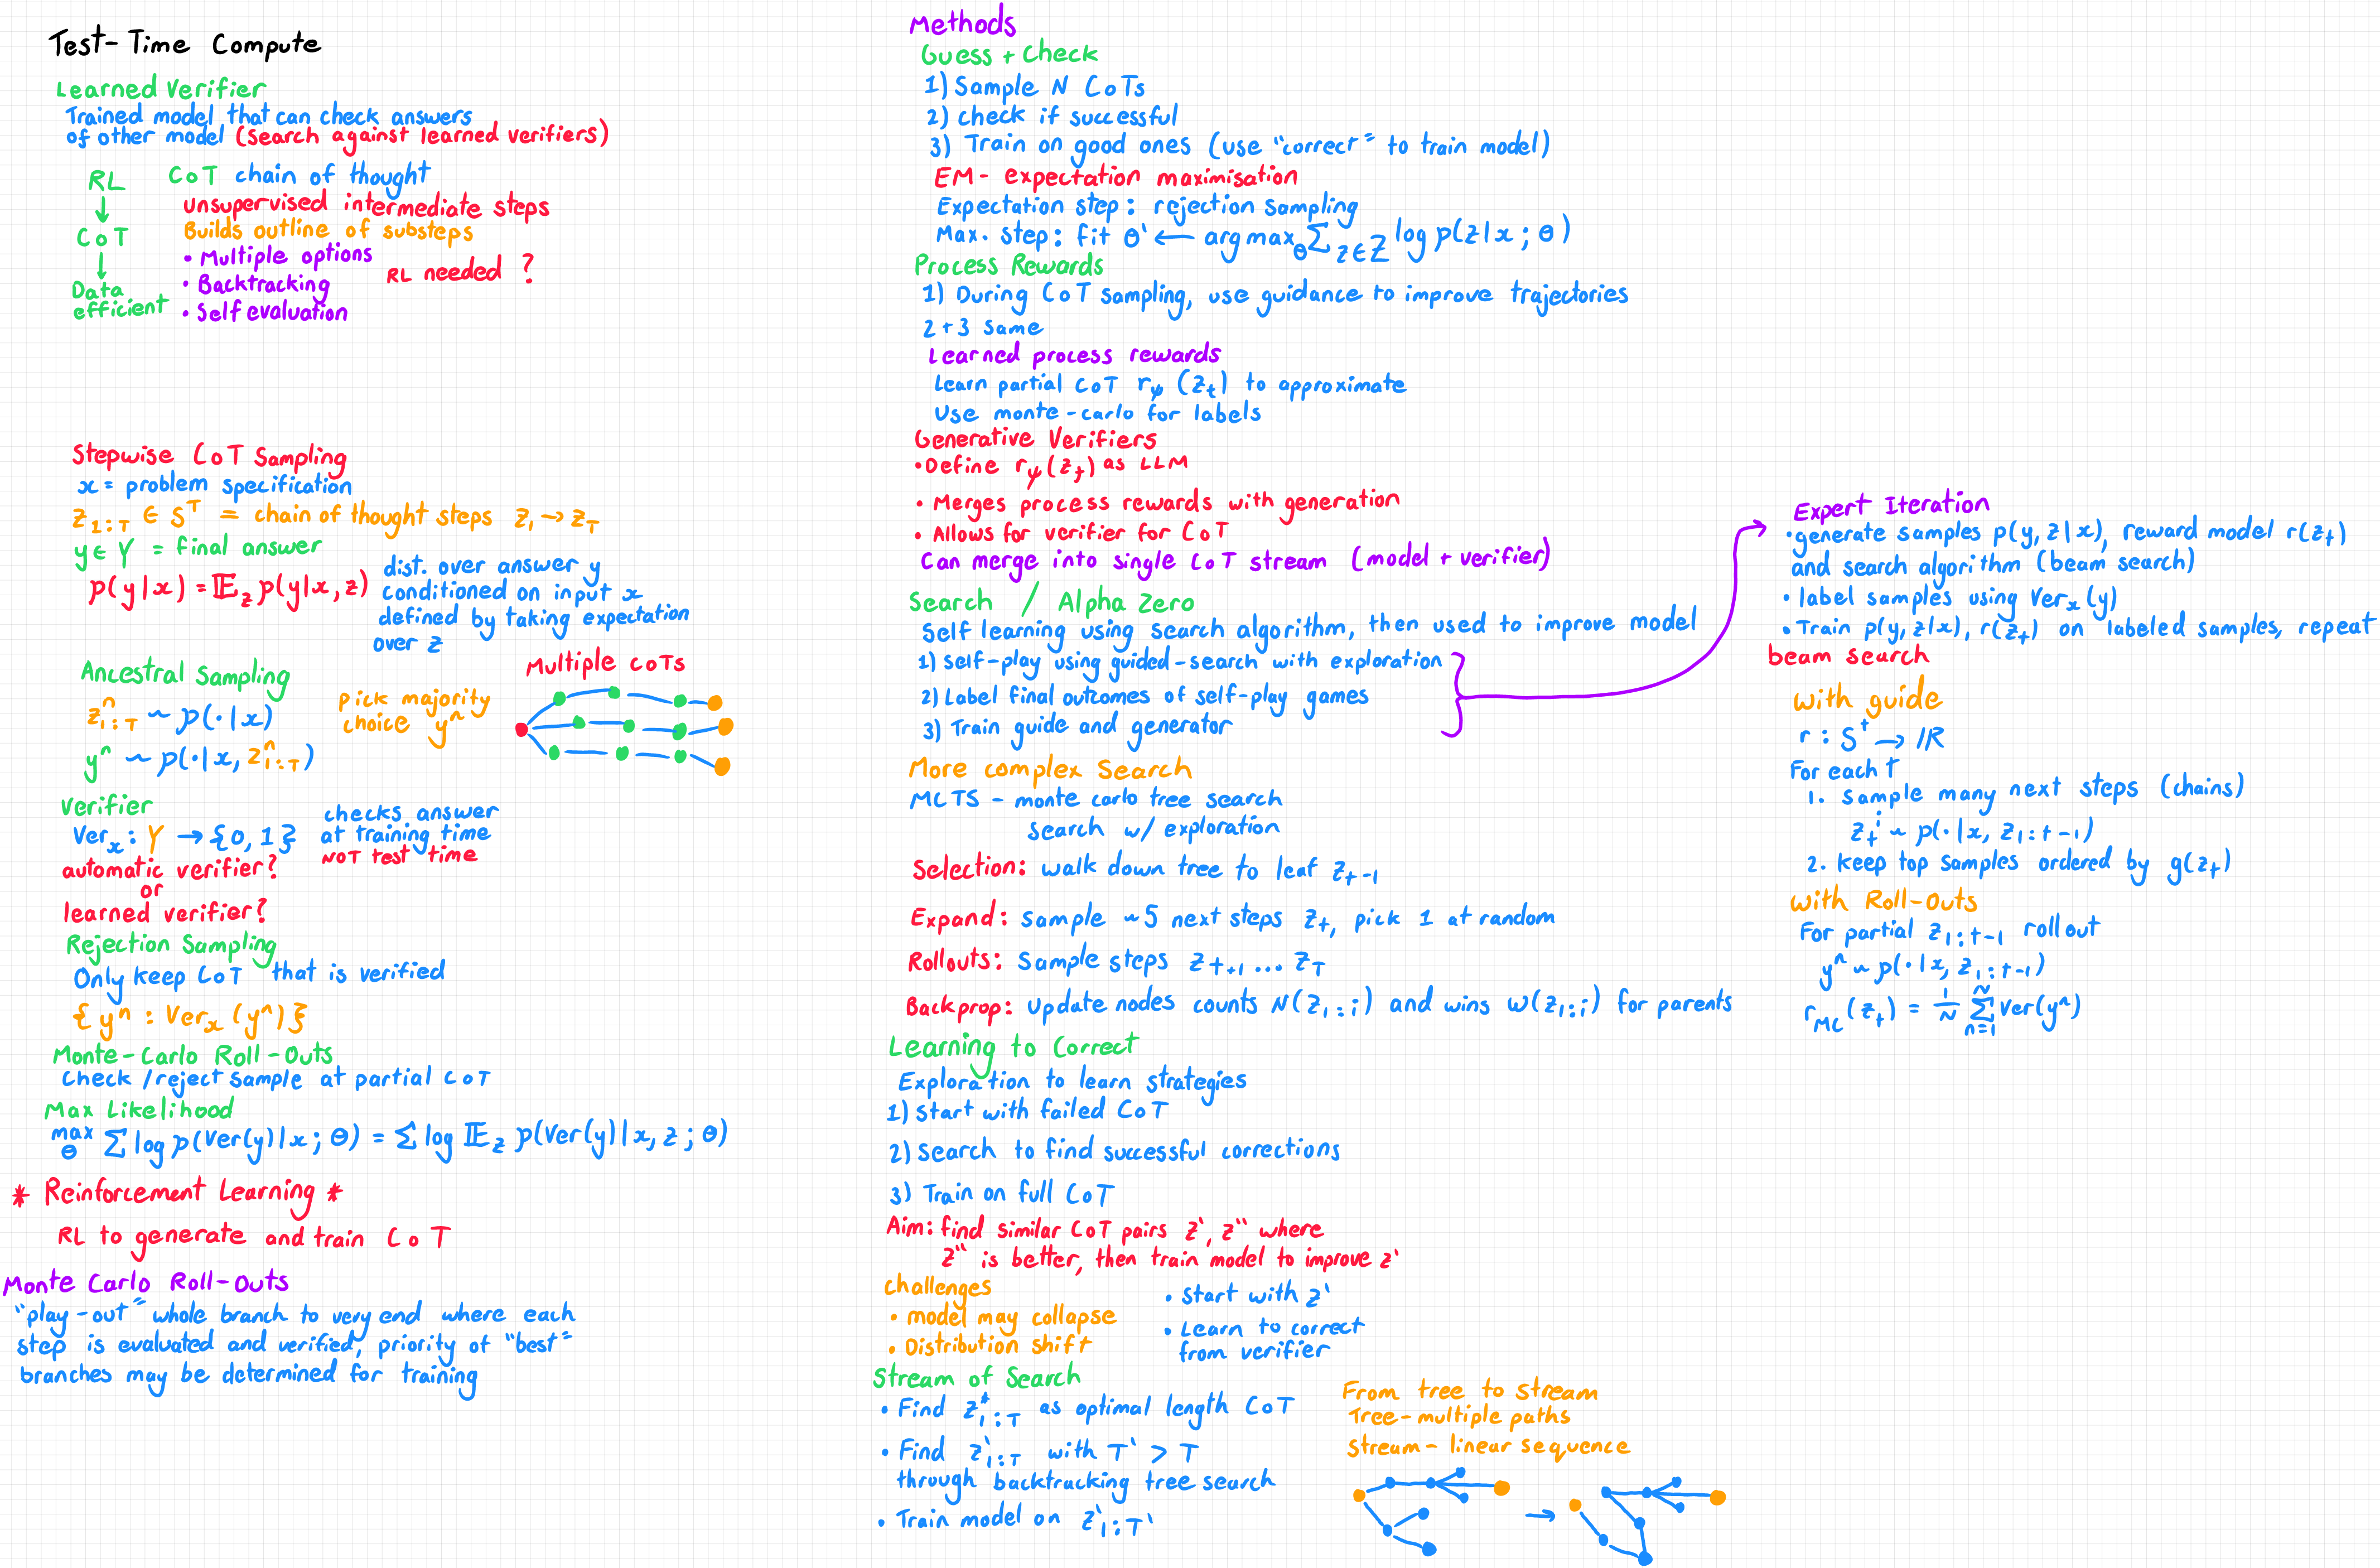 Test-Time Compute
Learned Verifier
Trained model that can check answers
of other model (search against learned verifiers)
RL
↓
CoT
↓
Data
efficient
CoT chain of thought
unsupervised intermediate steps
Builds outline of substeps
• Multiple options
• Backtracking
• Self evaluation
RL needed ?
Stepwise CoT Sampling
x = problem specification
z₁:T ∈ Sᵀ = chain of thought steps z₁ → z_T
y ∈ Y = final answer
p(y|x) = 𝔼_z p(y|x, z)
dist. over answer y
conditioned on input x
defined by taking expectation
over z
Ancestral Sampling
zⁿ₁:T ~ p(·|x)
yⁿ ~ p(·|x, zⁿ₁:T)
pick majority
choice yⁿ
Multiple CoTs
Verifier
Ver_x : Y → {0, 1}
checks answer
at training time
NOT test time
automatic verifier?
or
learned verifier?
Rejection Sampling
Only keep CoT that is verified
{yⁿ : Ver_x (yⁿ)}
Monte-Carlo Roll-Outs
Check /reject sample at partial CoT
Max Likelihood
max_θ Σ log p(Ver(y)|x; θ) = Σ log 𝔼_z p(Ver(y)|x, z; θ)
* Reinforcement Learning *
RL to generate and train CoT
Monte Carlo Roll-Outs
"play-out" whole branch to very end where each
step is evaluated and verified, priority of "best"
branches may be determined for training
Methods
Guess + Check
1) Sample N CoTs
2) check if successful
3) Train on good ones (use "correct" to train model)
EM - expectation maximisation
Expectation step: rejection sampling
Max. step: fit θ' ← arg max_θ Σ_{z∈Z} log p(z|x; θ)
Process Rewards
1) During CoT sampling, use guidance to improve trajectories
2+3 same
Learned process rewards
Learn partial CoT r_ψ (z_t) to approximate
Use monte-carlo for labels
Generative Verifiers
• Define r_ψ(z_t) as LLM
• Merges process rewards with generation
• Allows for verifier for CoT
Can merge into single CoT stream (model + verifier)
Search / Alpha Zero
Self learning using search algorithm, then used to improve model
1) self-play using guided-search with exploration
2) Label final outcomes of self-play games
3) Train guide and generator
More complex Search
MCTS - monte carlo tree search
search w/ exploration
Selection: walk down tree to leaf z_t-1
Expand: sample ~5 next steps z_t, pick 1 at random
Rollouts: sample steps z_t+1 ... z_T
Backprop: update nodes counts N(z₁:i) and wins w(z₁:i) for parents
Learning to Correct
Exploration to learn strategies
1) start with failed CoT
2) Search to find successful corrections
3) Train on full CoT
Aim: find similar CoT pairs z', z" where
z" is better, then train model to improve z'
challenges
• model may collapse
• Distribution shift
• start with z'
• Learn to correct
from verifier
Stream of Search
• Find z*₁:T as optimal length CoT
• Find z'₁:T with T' > T
through backtracking tree search
• Train model on z'₁:T'
From tree to stream
Tree - multiple paths
stream - linear sequence
Expert Iteration
• generate samples p(y, z|x), reward model r(z_t)
and search algorithm (beam search)
• label samples using Ver_x(y)
• Train p(y, z|x), r(z_t) on labeled samples, repeat
beam search
with guide
r : Sᵗ → ℝ
For each t
1. sample many next steps (chains)
z_tⁱ ~ p(·|x, z₁:t-1)
2. keep top samples ordered by g(z_t)
with Roll-Outs
For partial z₁:t-1 rollout
yⁿ ~ p(·|x, z₁:t-1)
r_MC(z_t) = 1/N Σ_{n=1}^{N} Ver(yⁿ)